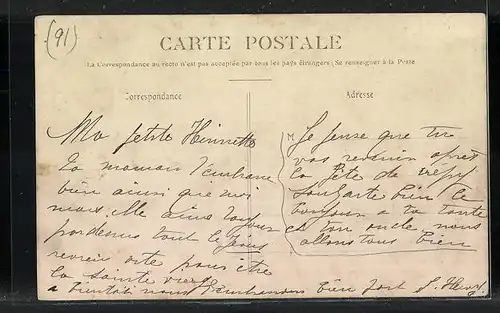 (91)
CARTE POSTALE
La Correspondance au recto n'est pas acceptée par tous les pays étrangers; Se renseigner à la Poste
Correspondance
Adresse
Ma petite Henriette
ta maman t'embrasse
bien ainsi que moi
tout le
revenir vite pour être
la sainte
a bientôt nous t'embrassons bien fort
M
Je pense que tu
vas revenir après
la fête de
souhaite bien le
bonjour a ta tante
et ton oncle nous
allons tous bien